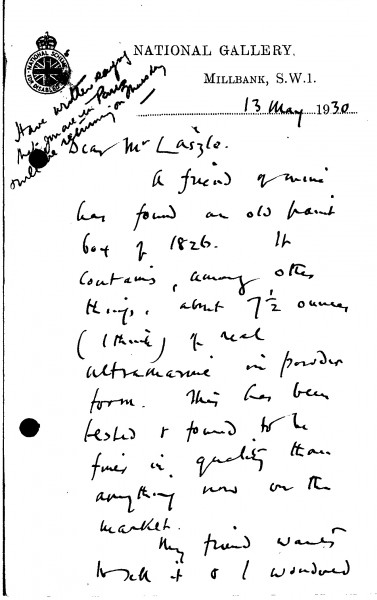 NATIONAL GALLERY.
MILLBANK, S.W.1.
13 May 1930
Have written saying
that you are in Paris
will be returning on Thursday
Dear Mr László.
A friend of mine
has found an old paint
box of 1826. It
contains, among other
things, about 7½ ounces
(I think) of real
ultramarine in powder
form. This has been
tested & found to be
finer in quality than
anything now on the
market.
My friend wants
to sell it & I wondered